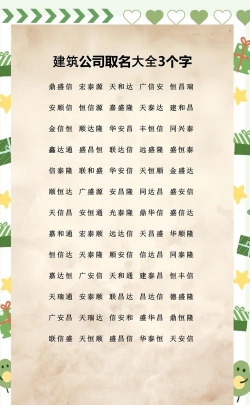 建筑公司取名大全3个字
鼎盛信 宏泰源 天和达 广信安 恒昌瑞
安顺信 恒信源 嘉盛隆 天泰达 建和昌
金信恒 顺达隆 华安昌 丰恒信 同兴泰
鑫达通 盛昌恒 联达信 远盛隆 盛恒泰
信泰隆 联和盛 华安信 天恒顺 金盛达
顺恒达 广盛源 安昌隆 同达昌 盛安信
天信昌 安恒通 光泰隆 鼎华信 盛信达
嘉和通 宏泰顺 远达信 天昌盛 华顺隆
恒信达 天泰隆 顺安信 信达昌 同泰隆
嘉达恒 广安信 天和通 建泰昌 恒丰信
天瑞通 安泰顺 联昌达 昌达信 德盛隆
广安昌 天瑞达 信安和 盛华昌 鼎恒隆
联信盛 天恒顺 盛昌信 华泰恒 天安信